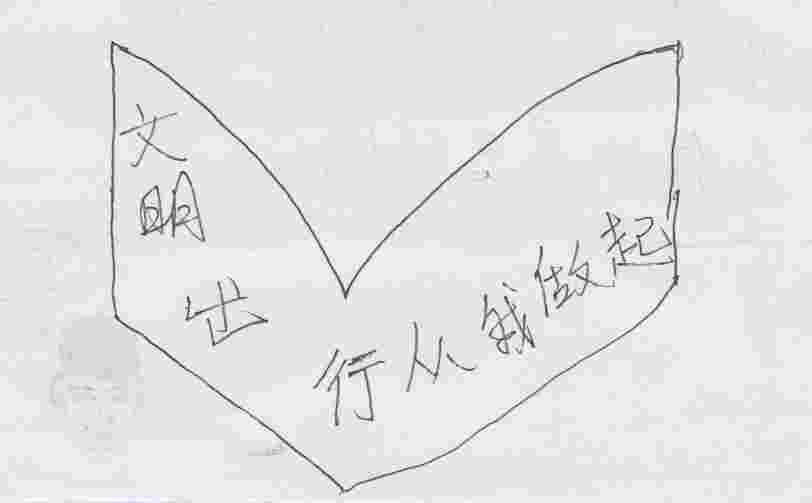 文明出行从我做起